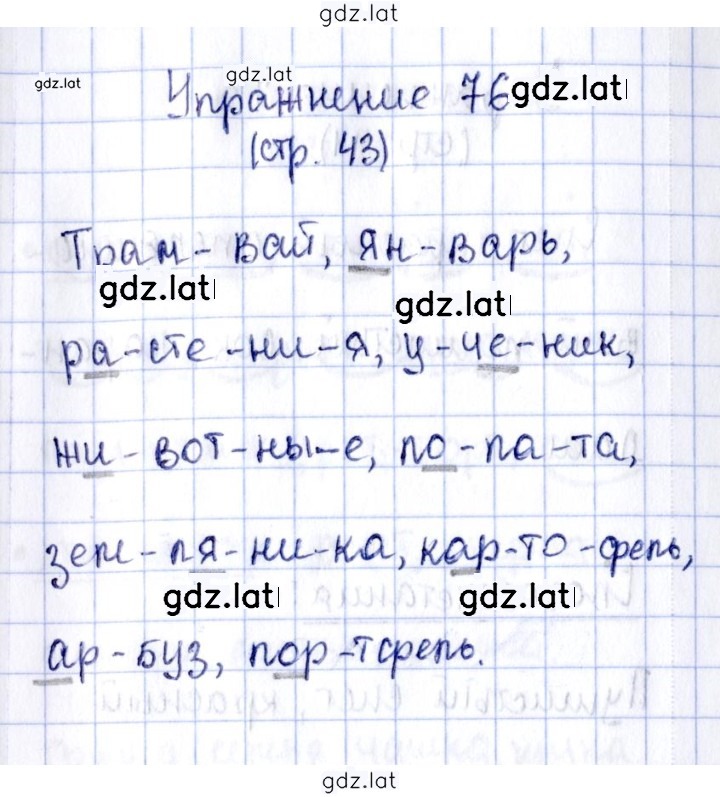 gdz.lat
gdz.lat
gdz.lat
Упражнение 76 gdz.lat
(стр. 43)
Трам-вай, ян-варь,
gdz.lat gdz.lat
ра-сте-ни-я, у-че-ник,
жи-вот-ны-е, ло-па-та,
зем-ля-ни-ка, кар-то-фель,
gdz.lat gdz.lat
ар-буз, пор-тфель.
gdz.lat